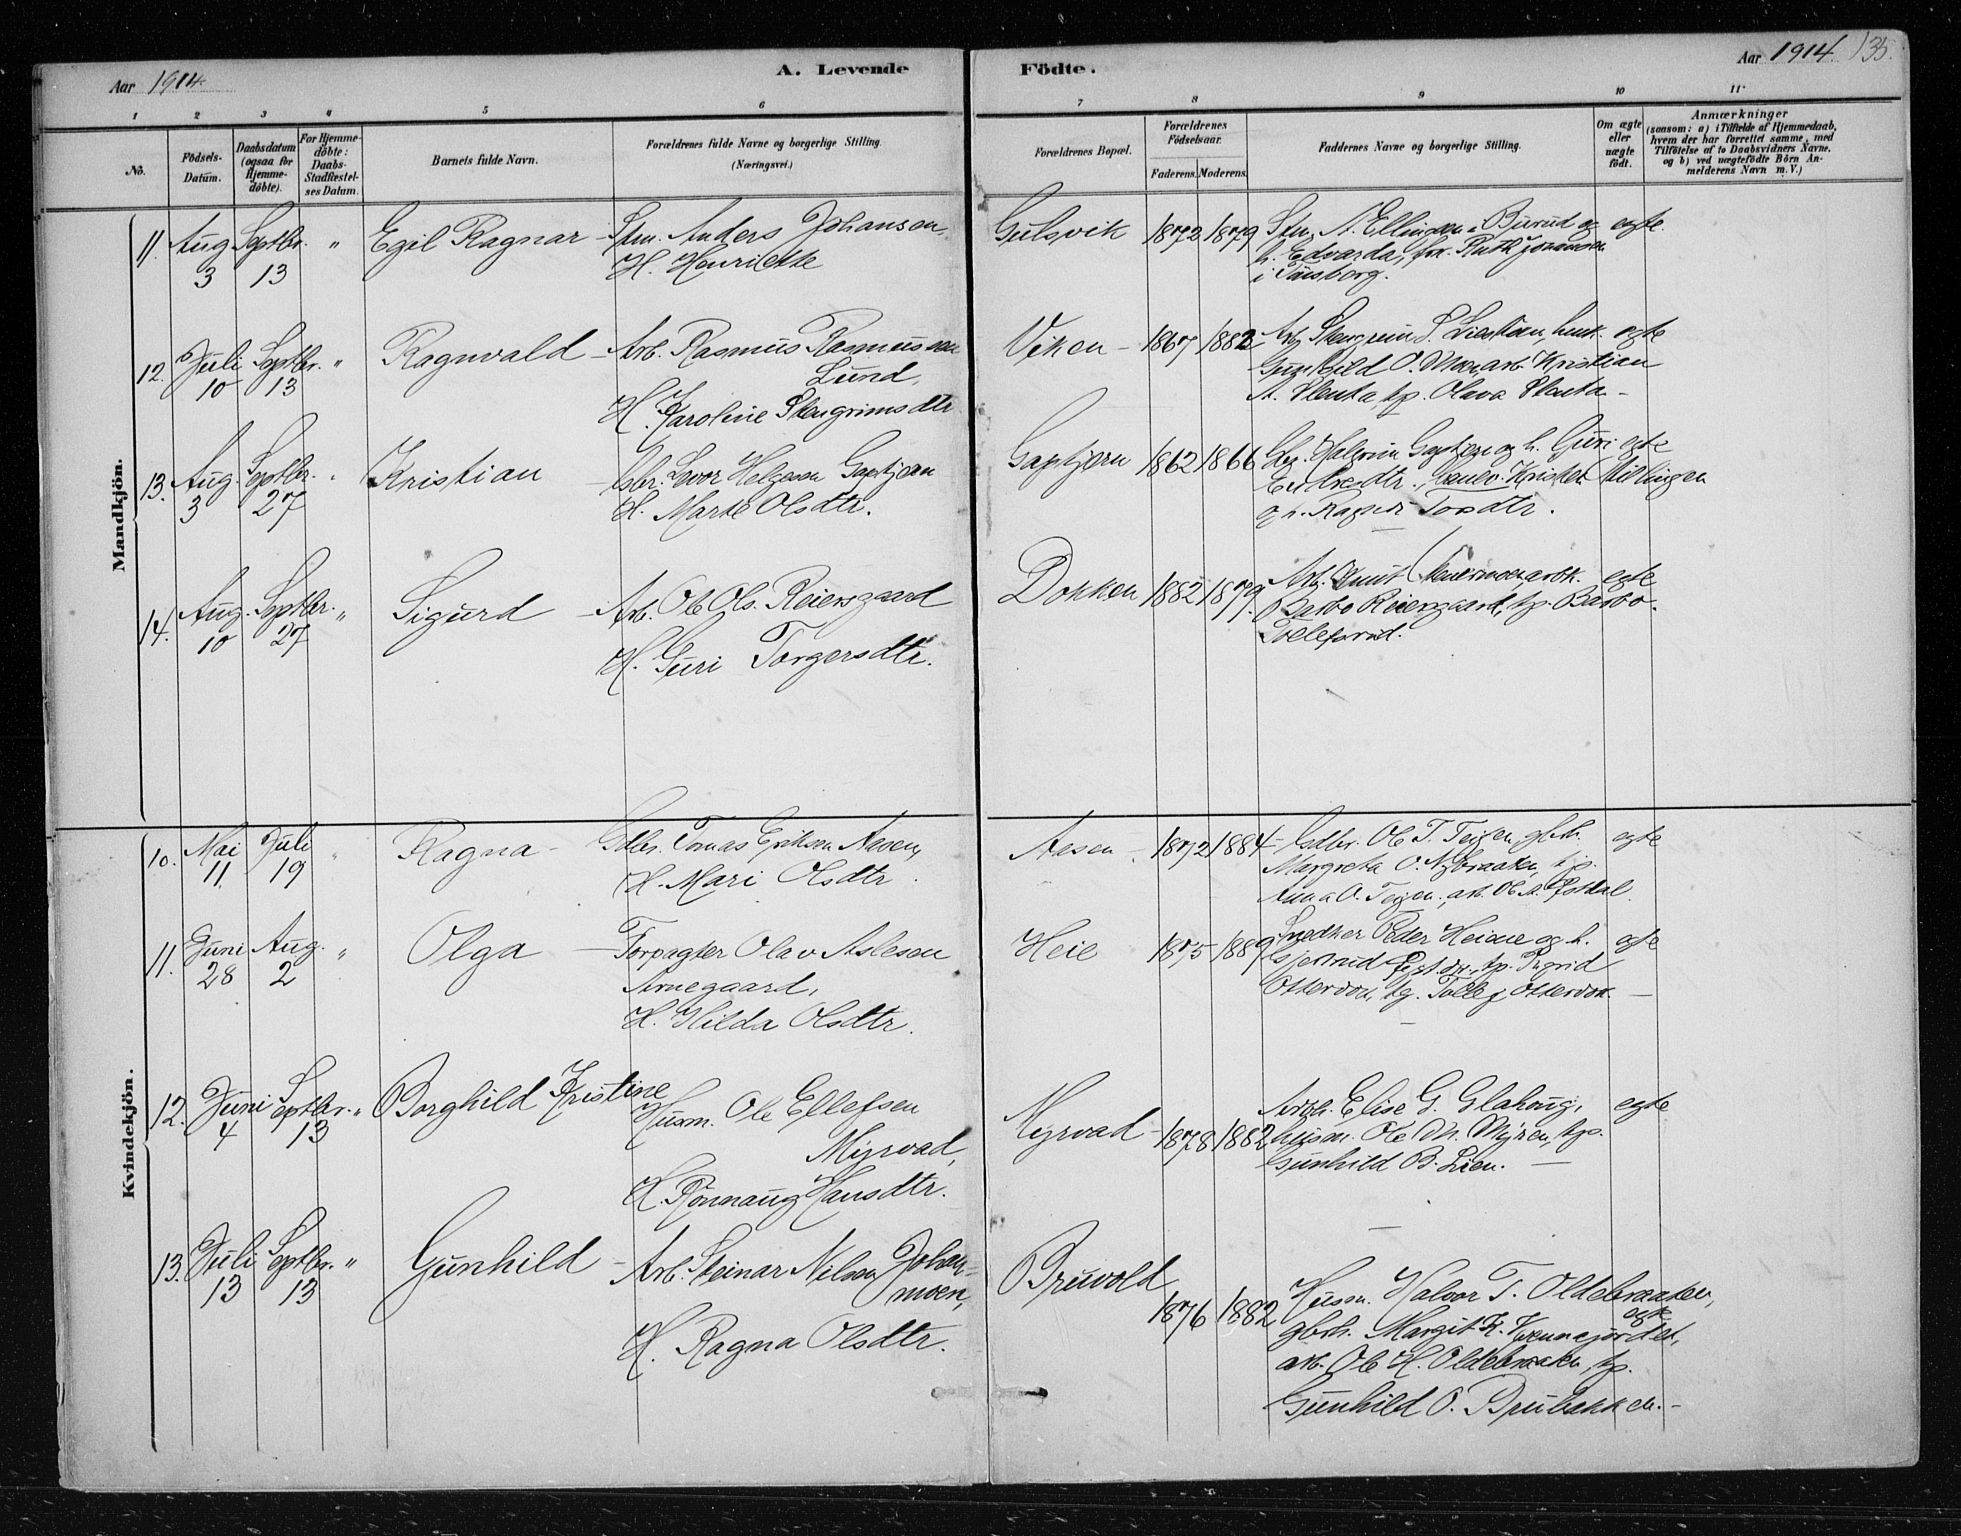 Aar 1914.
A. Levende
Födte.
Aar 1914. 135.
1 2 3 4 5 6 7 8 9 10 11
No.
Födsels-Datum.
Daabsdatum (ogsaa for Hjemme-döbte).
For Hjemme-döbte: Daabs-Stadfæstel-ses Datum.
Barnets fulde Navn.
Forældrenes fulde Navne og borgerlige Stilling. (Næringsvei.)
Forældrenes Bopæl.
Forældrenes Födselsaar.
Faderens. Moderens.
Faddernes Navne og borgerlige Stilling.
Om ægte eller uægte födt.
Anmærkninger
(saasom: a) i Tilfælde af Hjemmedaab, hvem der har forrettet samme, med Tilföielse af to Daabsvidners Navne, og b) ved uægtefödte Börn An-melderens Navn m. V.)
Mandkjön.
11. Aug. 3 Septbr. 13 " Egil Ragnar - Stm. Anders Johansen,
H. Henriette
Gulsvik 1872 1879 Stm. A. Ellingsen, Burud og egte
h. Edvarda, frk. Ruth Johansen
i Tönsborg.
12. Juli 10 Septbr. 13 " Ragnvald - Arb. Rasmus Rasmussen
Lund,
H. Karoline Stengrimsdtr
Viken - 1867 1882 Arb. Stengrim S. Liastöen, husk. egte
Gunhild O. Moen, arb. Kristian
A. Slenta tp. Olava Slenta -
13. Aug. 3 Septbr. 27 " Kristian - Gbr. Levor Helgesen Gaptjern
H. Marte Olsdtr.
Gaptjern 1862 1866 Lg. Halvor Gaptjern og h. Guri egte
Endresdtr., Kristen Tillingen
og h. Ragnhi Tordtr.
14. Aug. 10 Septbr. 27 " Sigurd - Arb. Ole Ols. Reiersgaard
H. Guri Torgersdtr.
Dokken 1882 1879 Arb. Knut arbk. egte
Barbo Reiersgaard, tp. Barbo
Tollefsrud.
Kvindekjön.
10. Mai 11 Juli 19 " Ragna - Gdbr. Tomas Eriksen Aasen,
H. Mari Olsdtr.
Aasen - 1872 1884 - Gdbr. Ole T. Teigen, gbrh. egte
Margreta O. Nybraaten, tp.
Anna O. Teigen, arb. Ole A. Eskdal
11. Juni 28 Aug. 2 " Olga - Forpagter Olav Aslesen
Arnegaard,
H. Hilda Olsdtr.
Heie 1875 1889 Snedker Peder Heiene og h. egte
Gjertrud tp. Ingrid
Otterdok, tg. Tollef Otterdok.
12. Juni 4 Septbr. 13 " Borghild Kristine
Husm. Ole Ellefsen
Myrvad,
H. Rönnaug Hansdtr.
Myrvad - 1878 1882 Arbh. Elise G. Glahoug, egte
husm. Ole Myren, tp.
Gunhild B. Lien. -
13. Juli 13 Septbr. 13 " Gunhild - Arb. Steinar Nilsen Johan-
moen,
H. Ragna Olsdtr.
Bruvold 1876 1882 Husm. Halvor T. Oldebraaten, egte
gbrh. Margit K. Kvennejordet,
arb. Ole H. Oldebraaten, tp.
Gunhild O. Brubakken. -